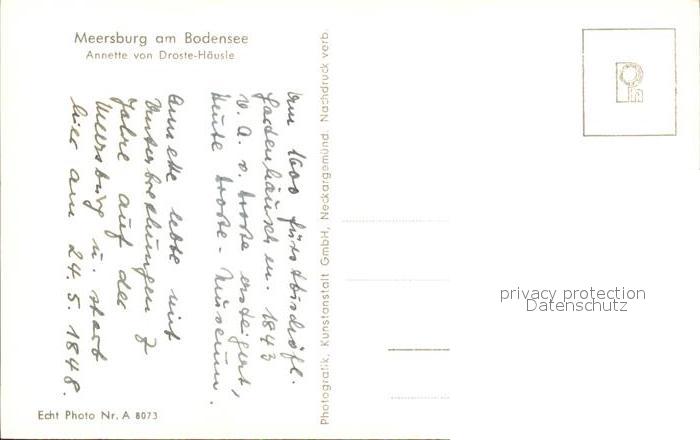 Meersburg am Bodensee
Annette von Droste-Häusle
Um 1600 fürstbischöfl.
Gartenhäuschen. 1843
v. A. v. Droste ersteigert,
heute Droste-Museum.
Annette lebte mit
Unterbrechungen 7
Jahre auf der
Meersburg u. starb
hier am 24. 5. 1848.
Echt Photo Nr. A 8073
Photografik, Kunstanstalt GmbH, Neckargemünd. Nachdruck verb.
privacy protection
Datenschutz